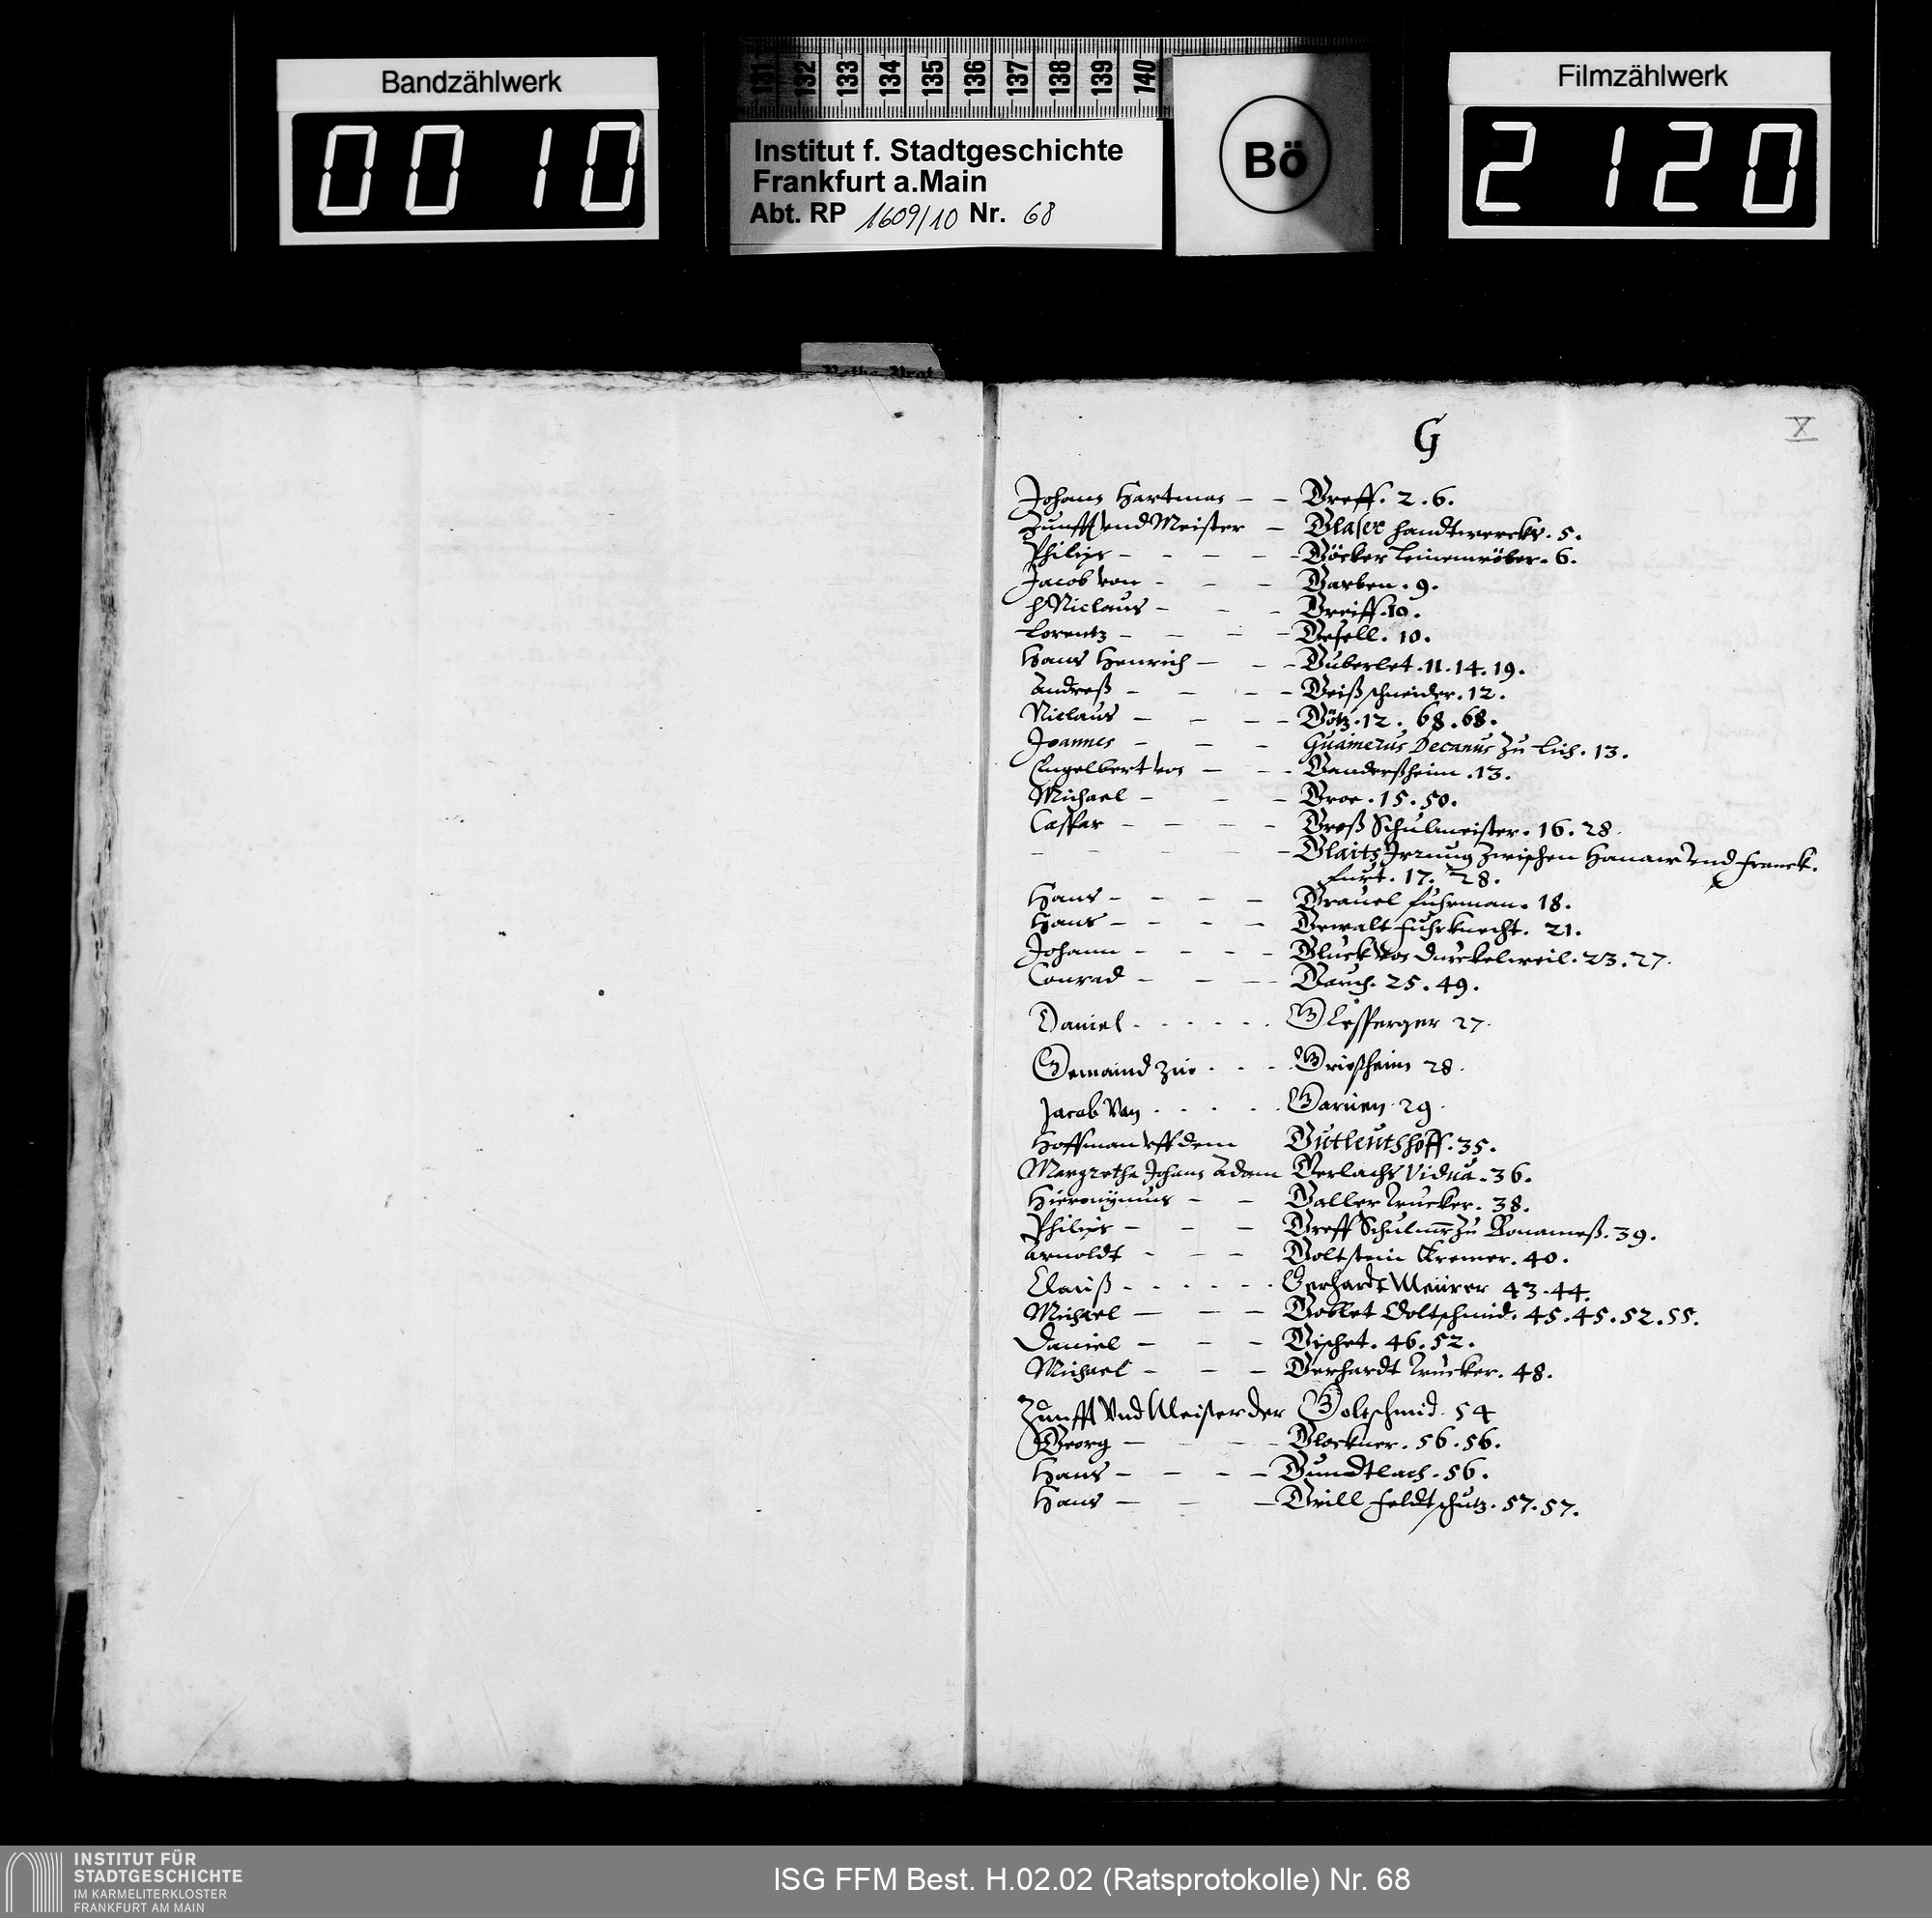 Bandzählwerk
0010
131 132 133 134 135 136 137 138 139 140
Institut f. Stadtgeschichte
Frankfurt a.Main
Abt. RP 1609/10 Nr. 68
Bö
Filmzählwerk
2120
G
X
Johans Hartman – – Greff. 2. 6.
Zunfft vnd Meister – Glaser handtwercks. 5.
Philips – – – – – Göcker 6.
Jacob von – – – Garben. 9.
H Niclaus – – – Greiff. 10.
Lorentz – – – – Gesell. 10.
Hans Henrich – – – Guberlet. 11. 14. 19.
Andreß – – – – Geißschneider. 12.
Niclaus – – – – Götz. 12. 68. 68.
Joannes – – – Guainerus Decanus zu Lich. 13.
Engelbert von – – – Ganderßheim. 13.
Michael – – – Groe. 15. 50.
Caspar – – – – Groß Schulmeister. 16. 28.
– – – – – Glaits Irrung zwischen Hanaw vnd Franck.
furt. 17. 28.
Hans – – – – Grauel fuhrman. 18.
Hans – – – – Gewalt fuhrknecht. 21.
Johann – – – – Gluck von Durckelweil. 23. 27.
Conrad – – – – Gauch. 25. 49.
Daniel . . . . . . Glesperger 27.
Gemaind zue . . . . Grießheim 28.
Jacob Van . . . . . Garuen 29.
Hoffman vff dem Gutleutshoff. 35.
Margretha Johans Adam Gerlachs Vidua. 36.
Hieronymus – – Galler 38.
Philips – – – Greff Schulmr zu Bonameß. 39.
Arnoldt – – – Goltstein Kremer. 40.
Clauß . . . . . . Gerhardt Meurer 43. 44.
Michael – – – Goblet Goltschmid. 45. 45. 52. 55.
Daniel – – – Gischet. 46. 52.
Michael – – – Gerhardt 48.
Zunfft Vnd Meister der Goltschmid. 54
Georg – – – – Glockner. 56. 56.
Hans – – – – Gundtlach. 56.
Hans – – – Grill feldtschutz. 57. 57.
INSTITUT FÜR
STADTGESCHICHTE
IM KARMELITERKLOSTER
FRANKFURT AM MAIN
ISG FFM Best. H.02.02 (Ratsprotokolle) Nr. 68